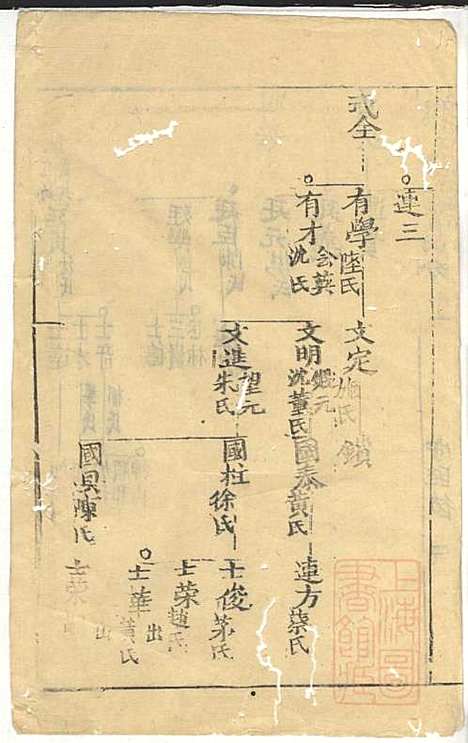 連三
弐全
有學陸氏
有才
會英
沈氏
文定施氏
鎖
文明
沈董氏
國泰黃氏
連方蔡氏
文進朱氏
望元
國柱徐氏
士俊茅氏
士榮趙氏
出
士華黃氏
國昊陳氏
士榮
出
上海圖書館藏